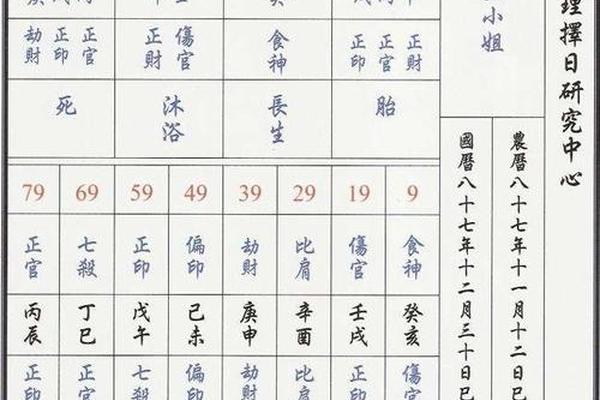 理擇日研究中心
小姐
農曆八十七年十一月十二日巳
國曆八十七年十二月三十日巳
正財 正官 正印 食神 傷官 正財 正官 正印 劫財
胎 長生 沐浴 死
9 19 29 39 49 59 69 79
食神 傷官 比肩 劫財 偏印 正印 七殺 正官
癸亥 壬戌 辛酉 庚申 己未 戊午 丁巳 丙辰
傷官 正印 比肩 劫財 偏印 七殺 正官 正印